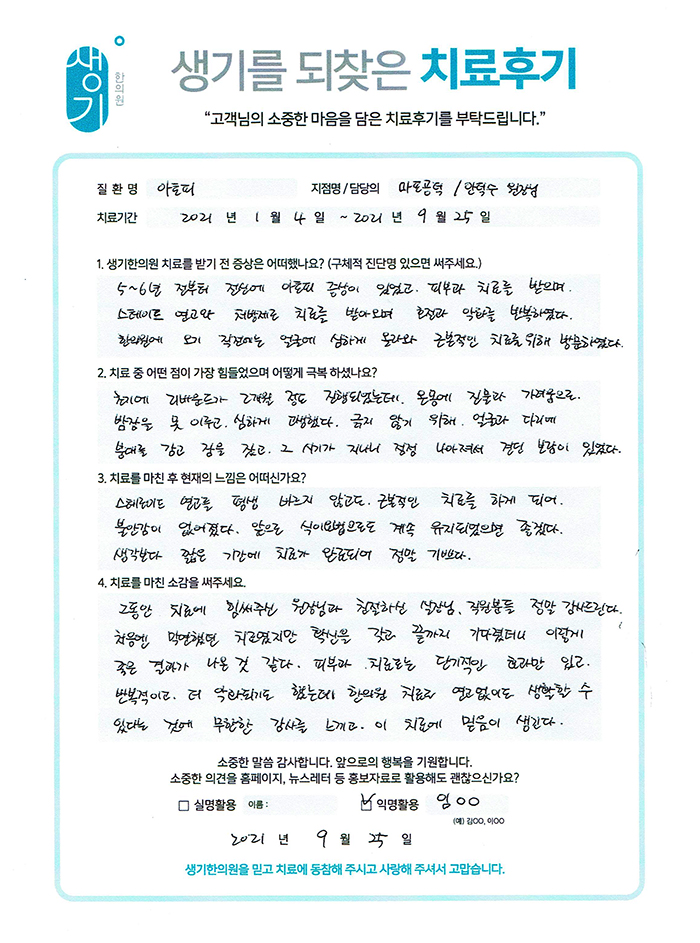 생기
한의원
생기를 되찾은 치료후기
“고객님의 소중한 마음을 담은 치료후기를 부탁드립니다.”
질 환 명 아토피 지점명 / 담당의 마포공덕 / 안덕수 원장님
치료기간 2021 년 1 월 4 일 ~ 2021 년 9 월 25 일
1. 생기한의원 치료를 받기 전 증상은 어떠했나요? (구체적 진단명 있으면 써주세요.)
5~6년 전부터 전신에 아토피 증상이 있었고. 피부과 치료를 받으며.
스테이드 연고와 처방제로 치료를 받아오며 호전과 악화를 반복하였다.
한의원에 오기 직전에는 얼굴에 심하게 올라와 근본적인 치료를 위해 방문하였다.
2. 치료 중 어떤 점이 가장 힘들었으며 어떻게 극복 하셨나요?
초기에 리바운드가 2개월 정도 진행되었는데. 온몸에 진물과 가려움으로.
밤잠은 못 이루고. 심하게 고생했다. 긁지 않기 위해. 얼굴과 다리에
붕대를 감고 잠을 잤고. 그 시기가 지나니 점점 나아져서 견딘 보람이 있었다.
3. 치료를 마친 후 현재의 느낌은 어떠신가요?
스테로이드 연고를 평생 바르지 않고도. 근본적인 치료를 하게 되어.
불안감이 없어졌다. 앞으로 식이요법으로도 계속 유지되었으면 좋겠다.
생각보다 짧은 기간에 치료가 완료되어 정말 기쁘다.
4. 치료를 마친 소감을 써주세요.
그동안 치료에 힘써주신 원장님과 친절하신 실장님, 직원분들 정말 감사드린다.
처음엔 막연했던 치료였지만 확신을 갖고 끝까지 기다렸더니 이렇게
좋은 결과가 나온 것 같다. 피부과 치료로는 단기적인 효과만 있고.
반복적이고. 더 악화되기도 했는데 한의원 치료로 연고없이도 생활할 수
있다는 것에 무한한 감사를 느끼고. 이 치료에 믿음이 생긴다.
소중한 말씀 감사합니다. 앞으로의 행복을 기원합니다.
소중한 의견을 홈페이지, 뉴스레터 등 홍보자료로 활용해도 괜찮으신가요?
실명활용 이름 : 익명활용 임OO
(예) 김OO, 이OO
2021 년 9 월 25 일
생기한의원을 믿고 치료에 동참해 주시고 사랑해 주셔서 고맙습니다.